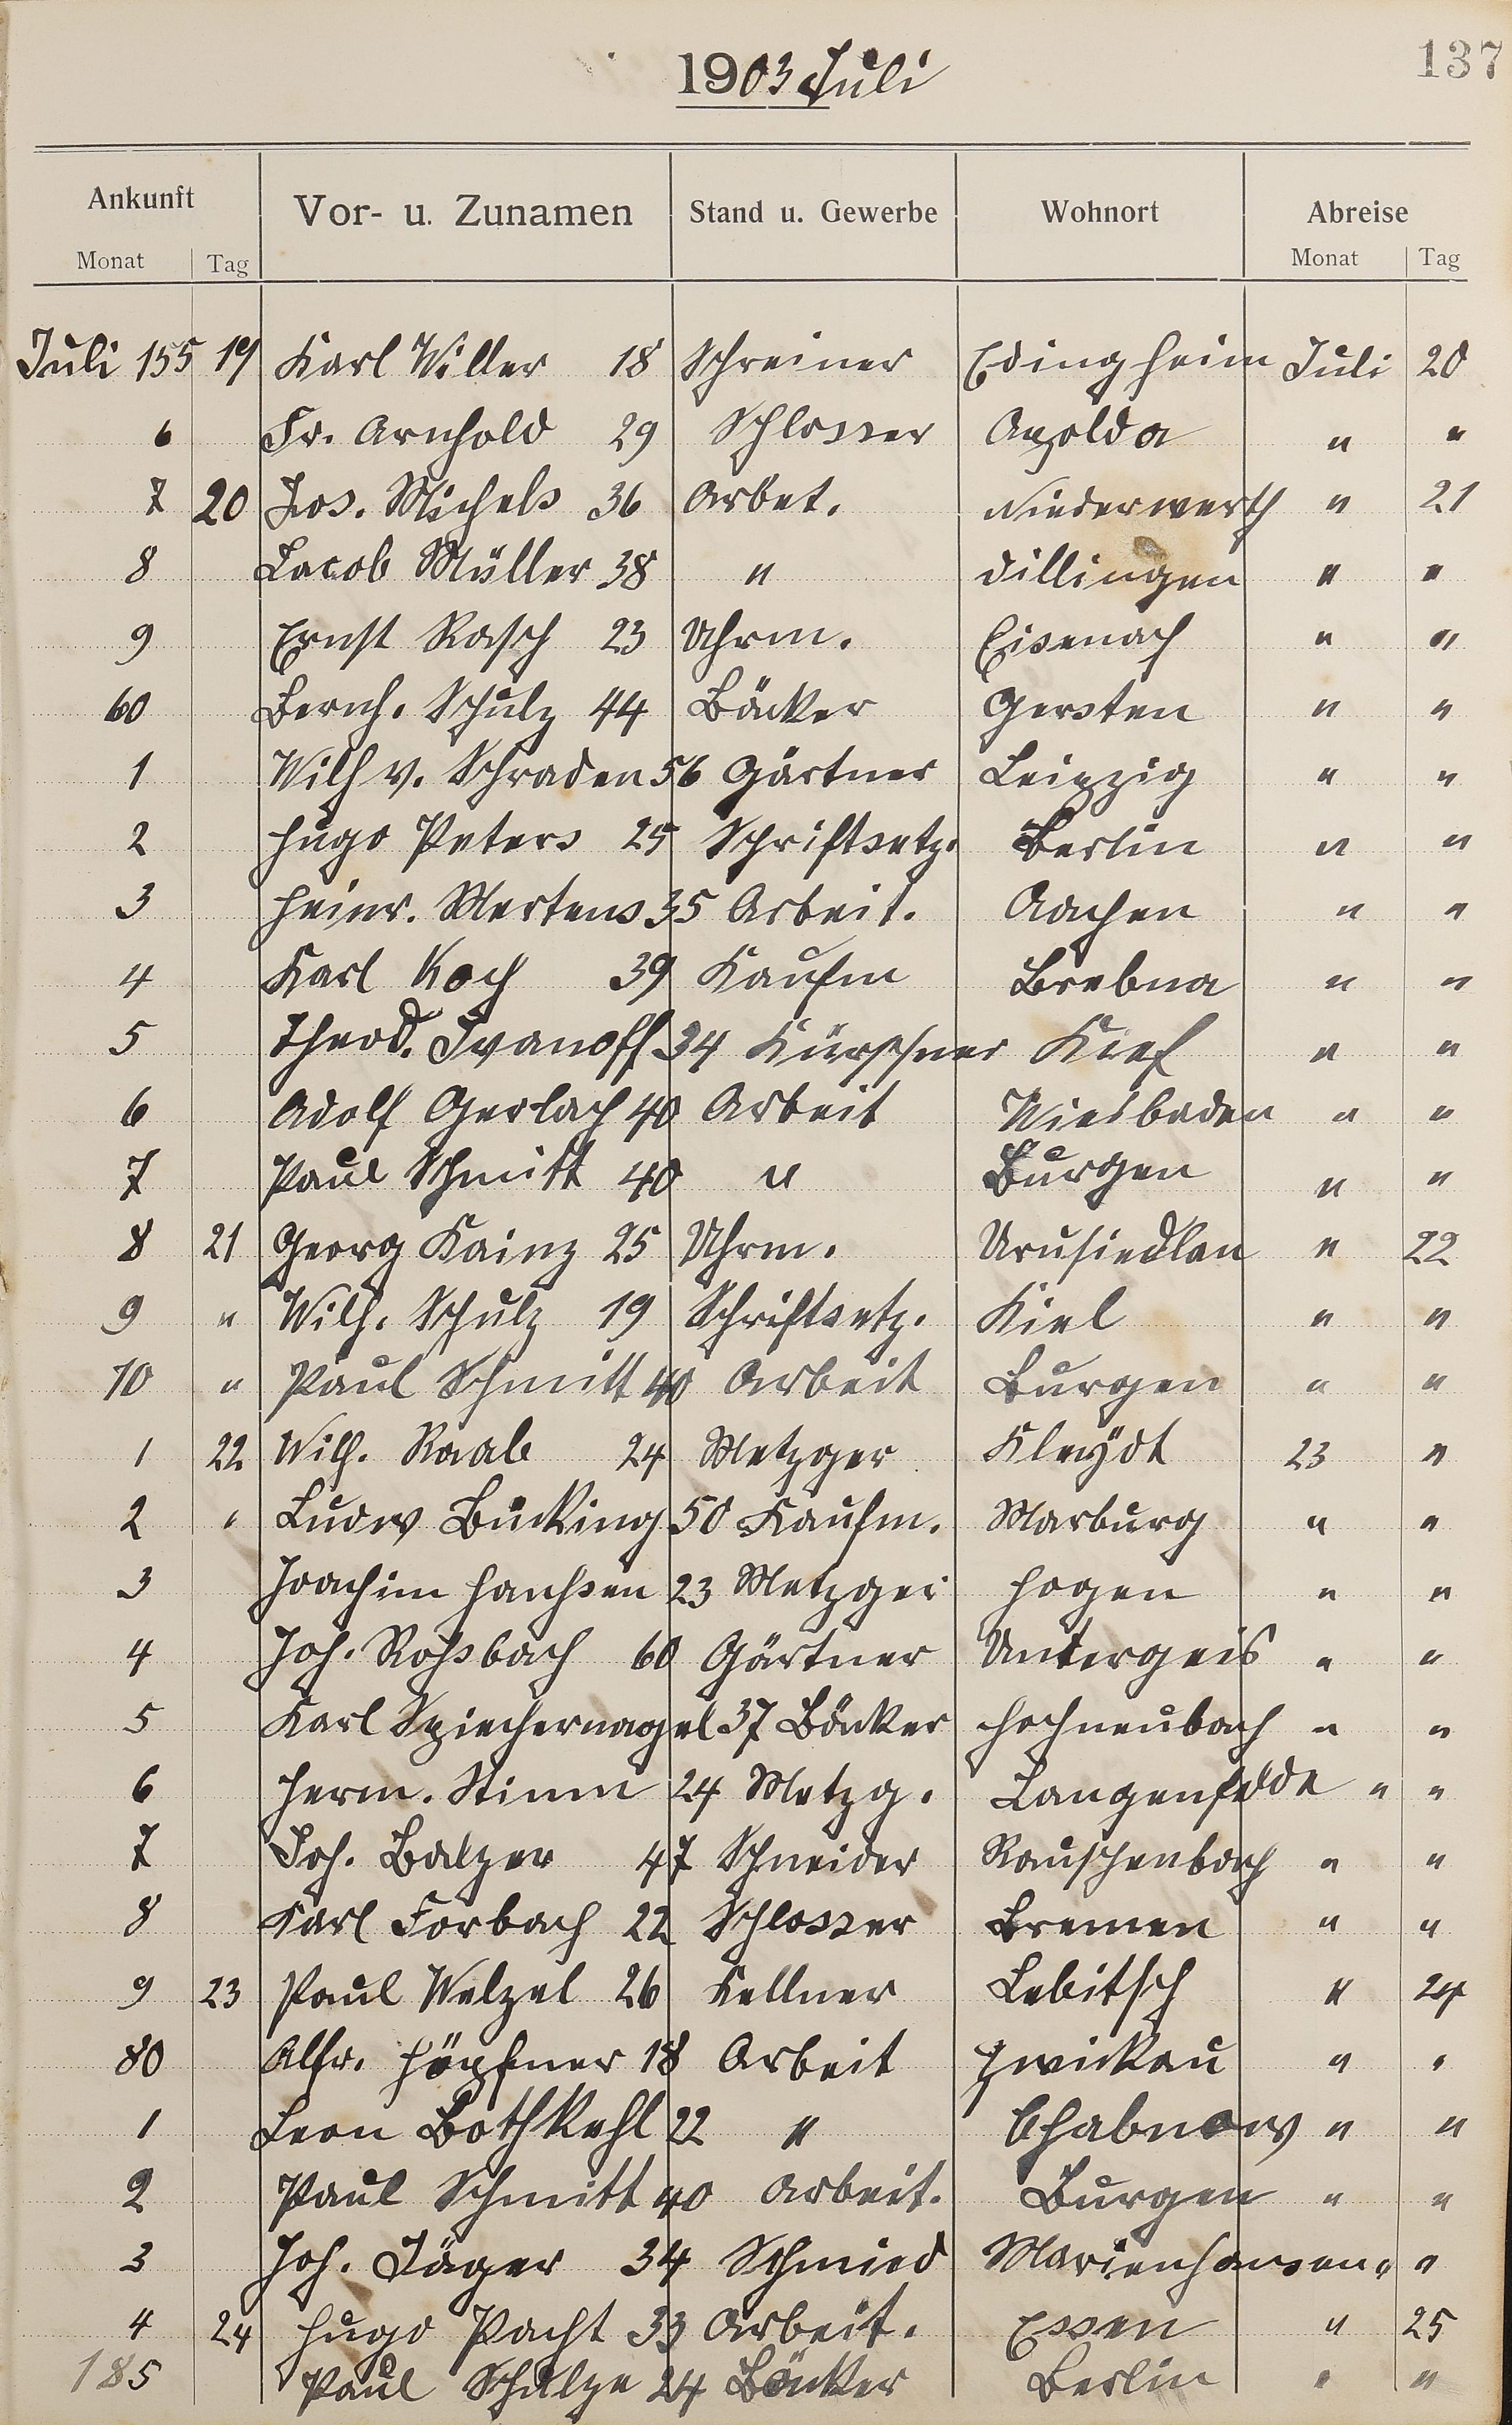 137
1903 Juli
Ankunft Vor- u. Zunamen Stand u. Gewerbe Wohnort Abreise
Monat Tag Monat Tag
Juli 155 19 Karl Willer 18 Schreiner Edingheim Juli 20
6 Fr. Arnhold 29 Schlosser Apolda " "
7 20 Jos. Michels 36 Arbet. Niederwerth " 21
8 Jacob Müller 38 " Dillingen " "
9 Ernst Rasch 23 Uhrm. Eisenach " "
60 Bernh. Schulz 44 Bäcker Gersten " "
1 Wilh v. Schraden 56 Gärtner Leipzig " "
2 Hugo Peters 25 Schriftsetz. Berlin " "
3 Heinr. Mertens 35 Arbeit. Aachen " "
4 Karl Koch 39 Kaufm Brebna " "
5 Theod. Ivanoff 34 Kürschner Kief " "
6 Adolf Gerlach 40 Arbeit Wiesbaden " "
7 Paul Schmitt 40 " Burgen " "
8 21 Georg Kainz 25 Uhrm. " 22
9 " Wilh. Schulz 19 Schriftsetz. Kiel " "
10 " Paul Schmitt 40 Arbeit Burgen " "
1 22 Wilh. Raab 24 Metzger 23 "
2 " Ludw Bücking 50 Kaufm. Marburg " "
3 Joachim Hanssen 23 Metzger Hagen " "
4 Joh. Rossbach 60 Gärtner Untergeis " "
5 Karl Spiechernagel 37 Bäcker Hochneubach " "
6 Herm. Stimm 24 Metzg. Langenfelde " "
7 Joh. Balzer 47 Schneider Rauschenbach " "
8 Karl Forbach 22 Schlosser Bremen " "
9 23 Paul Welzel 26 Kellner Lebitsch " 24
80 Alfr. Höpfner 18 Arbeit Zwickau " "
1 Leon Bothkehl 22 " Chabnow " "
2 Paul Schmitt 40 Arbeit. Burgen " "
3 Joh. Jäger 34 Schmied Marienhausen " "
4 24 Hugo Pacht 33 Arbeit. Essen " 25
185 Paul Schulze 24 Bäcker Berlin " "